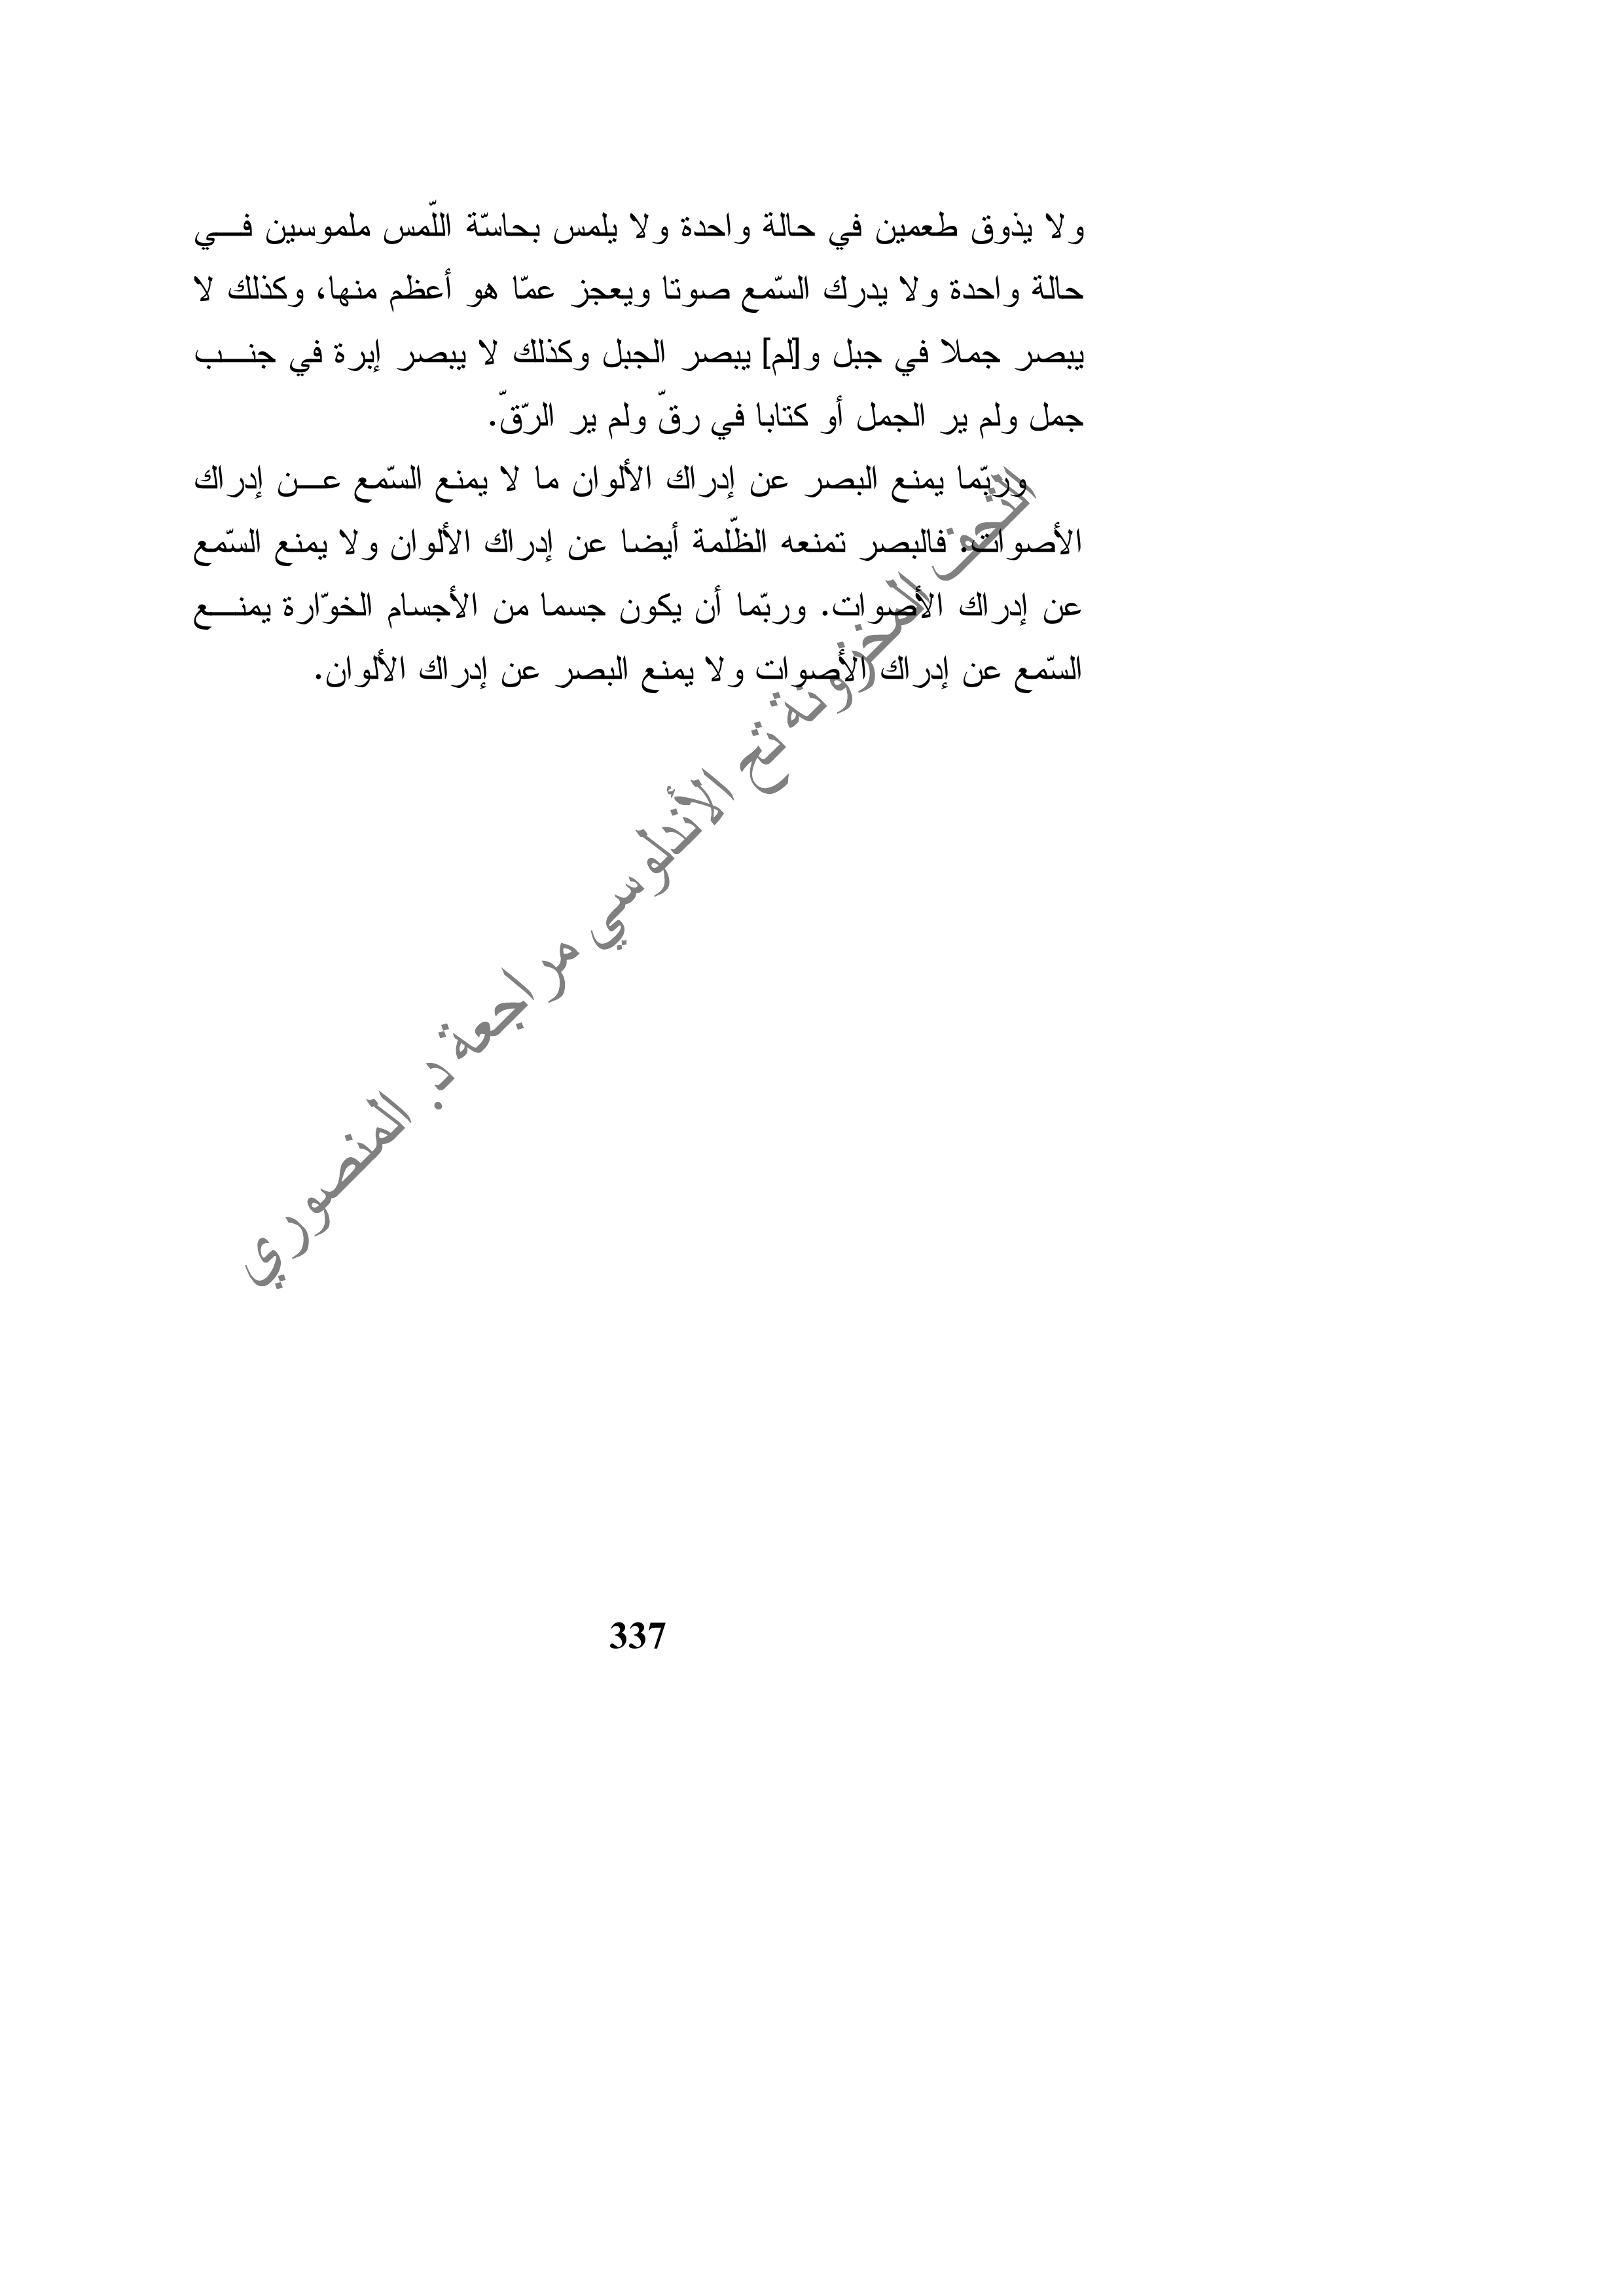 ولا يذوق طعمين في حالة واحدة ولا يلمس بحاسّة اللّمس ملموسين فـــي
حالة واحدة ولا يدرك السّمع صوتا ويعجز عمّا هو أعظم منها، وكذلك لا
يبصر جملا في جبل و[لم] يبصر الجبل وكذلك لا يبصر إبرة في جنـــب
جمل ولم ير الجمل أو كتابا في رقّ ولم ير الرّقّ.
وربّما يمنع البصر عن إدراك الألوان ما لا يمنع السّمع عـــن إدراك
الأصوات. فالبصر تمنعه الظّلمة أيضا عن إدراك الألوان ولا يمنع السّمع
عن إدراك الأصوات. وربّما أن يكون جسما من الأجسام الخوّارة يمنـــع
السّمع عن إدراك الأصوات ولا يمنع البصر عن إدراك الألوان.
التحف المخزونة تح الأندلوسي مراجعة د. المنصوري
337